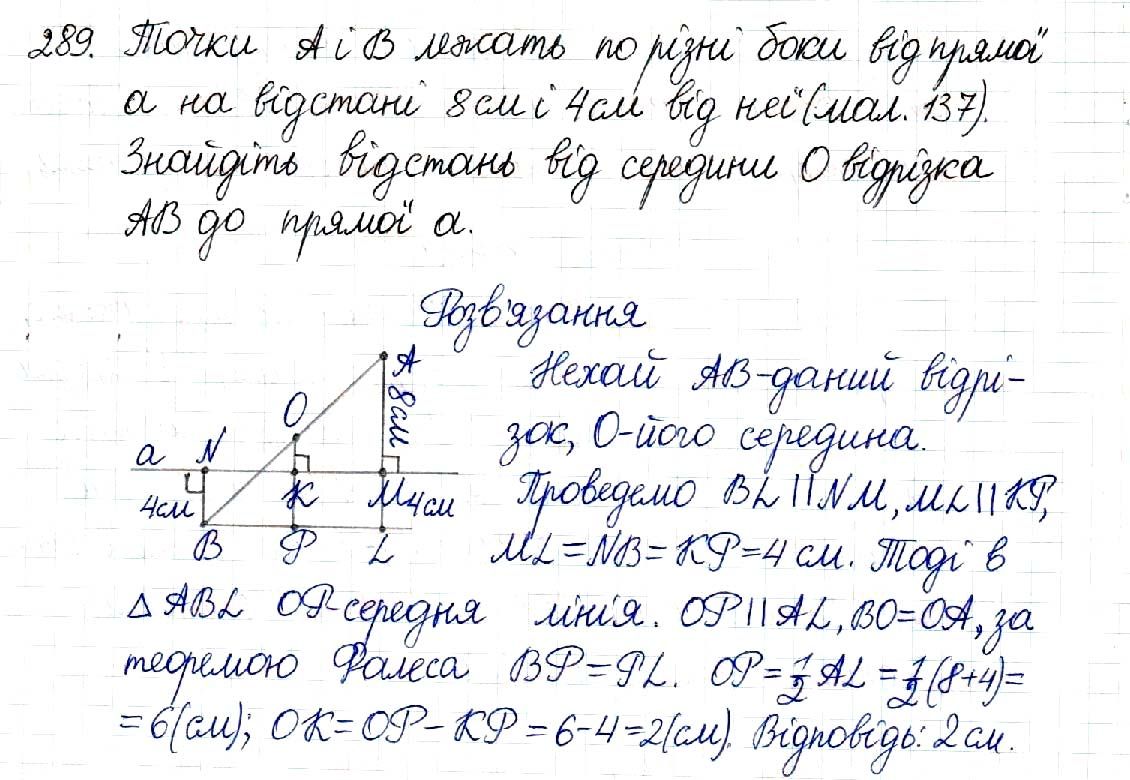 289. Точки А і В лежать по різні боки від прямої
а на відстані 8 см і 4 см від неї (мал. 137).
Знайдіть відстань від середини О відрізка
АВ до прямої а.
Розв'язання
A
8 см
O
a N
K M 4 см
4 см
B P L
Нехай АВ-даний відрі-
зок, О-його середина.
Проведемо BL || NM, ML || KP,
ML = NB = KP = 4 см. Тоді в
△ ABL OP-середня лінія. OP || AL, BO = OA, за
теоремою Фалеса BP = PL. OP = 1/2 AL = 1/2 (8+4) =
= 6 (см); OK = OP − KP = 6 − 4 = 2 (см). Відповідь: 2 см.